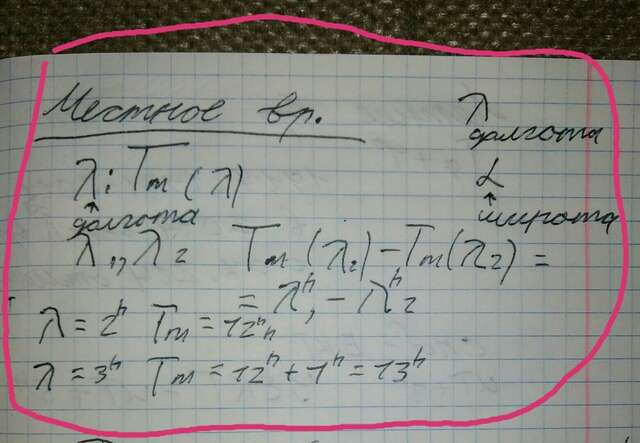 Местное вр.
λ
долгота
λ: Tm (λ)
↑
долгота
α
↑
широта
λ₁, λ₂ Tm (λ₁) - Tm (λ₂) =
= λʰ₁ - λʰ₂
λ = 2ʰ Tm = 12ʰ
λ = 3ʰ Tm = 12ʰ + 1ʰ = 13ʰ